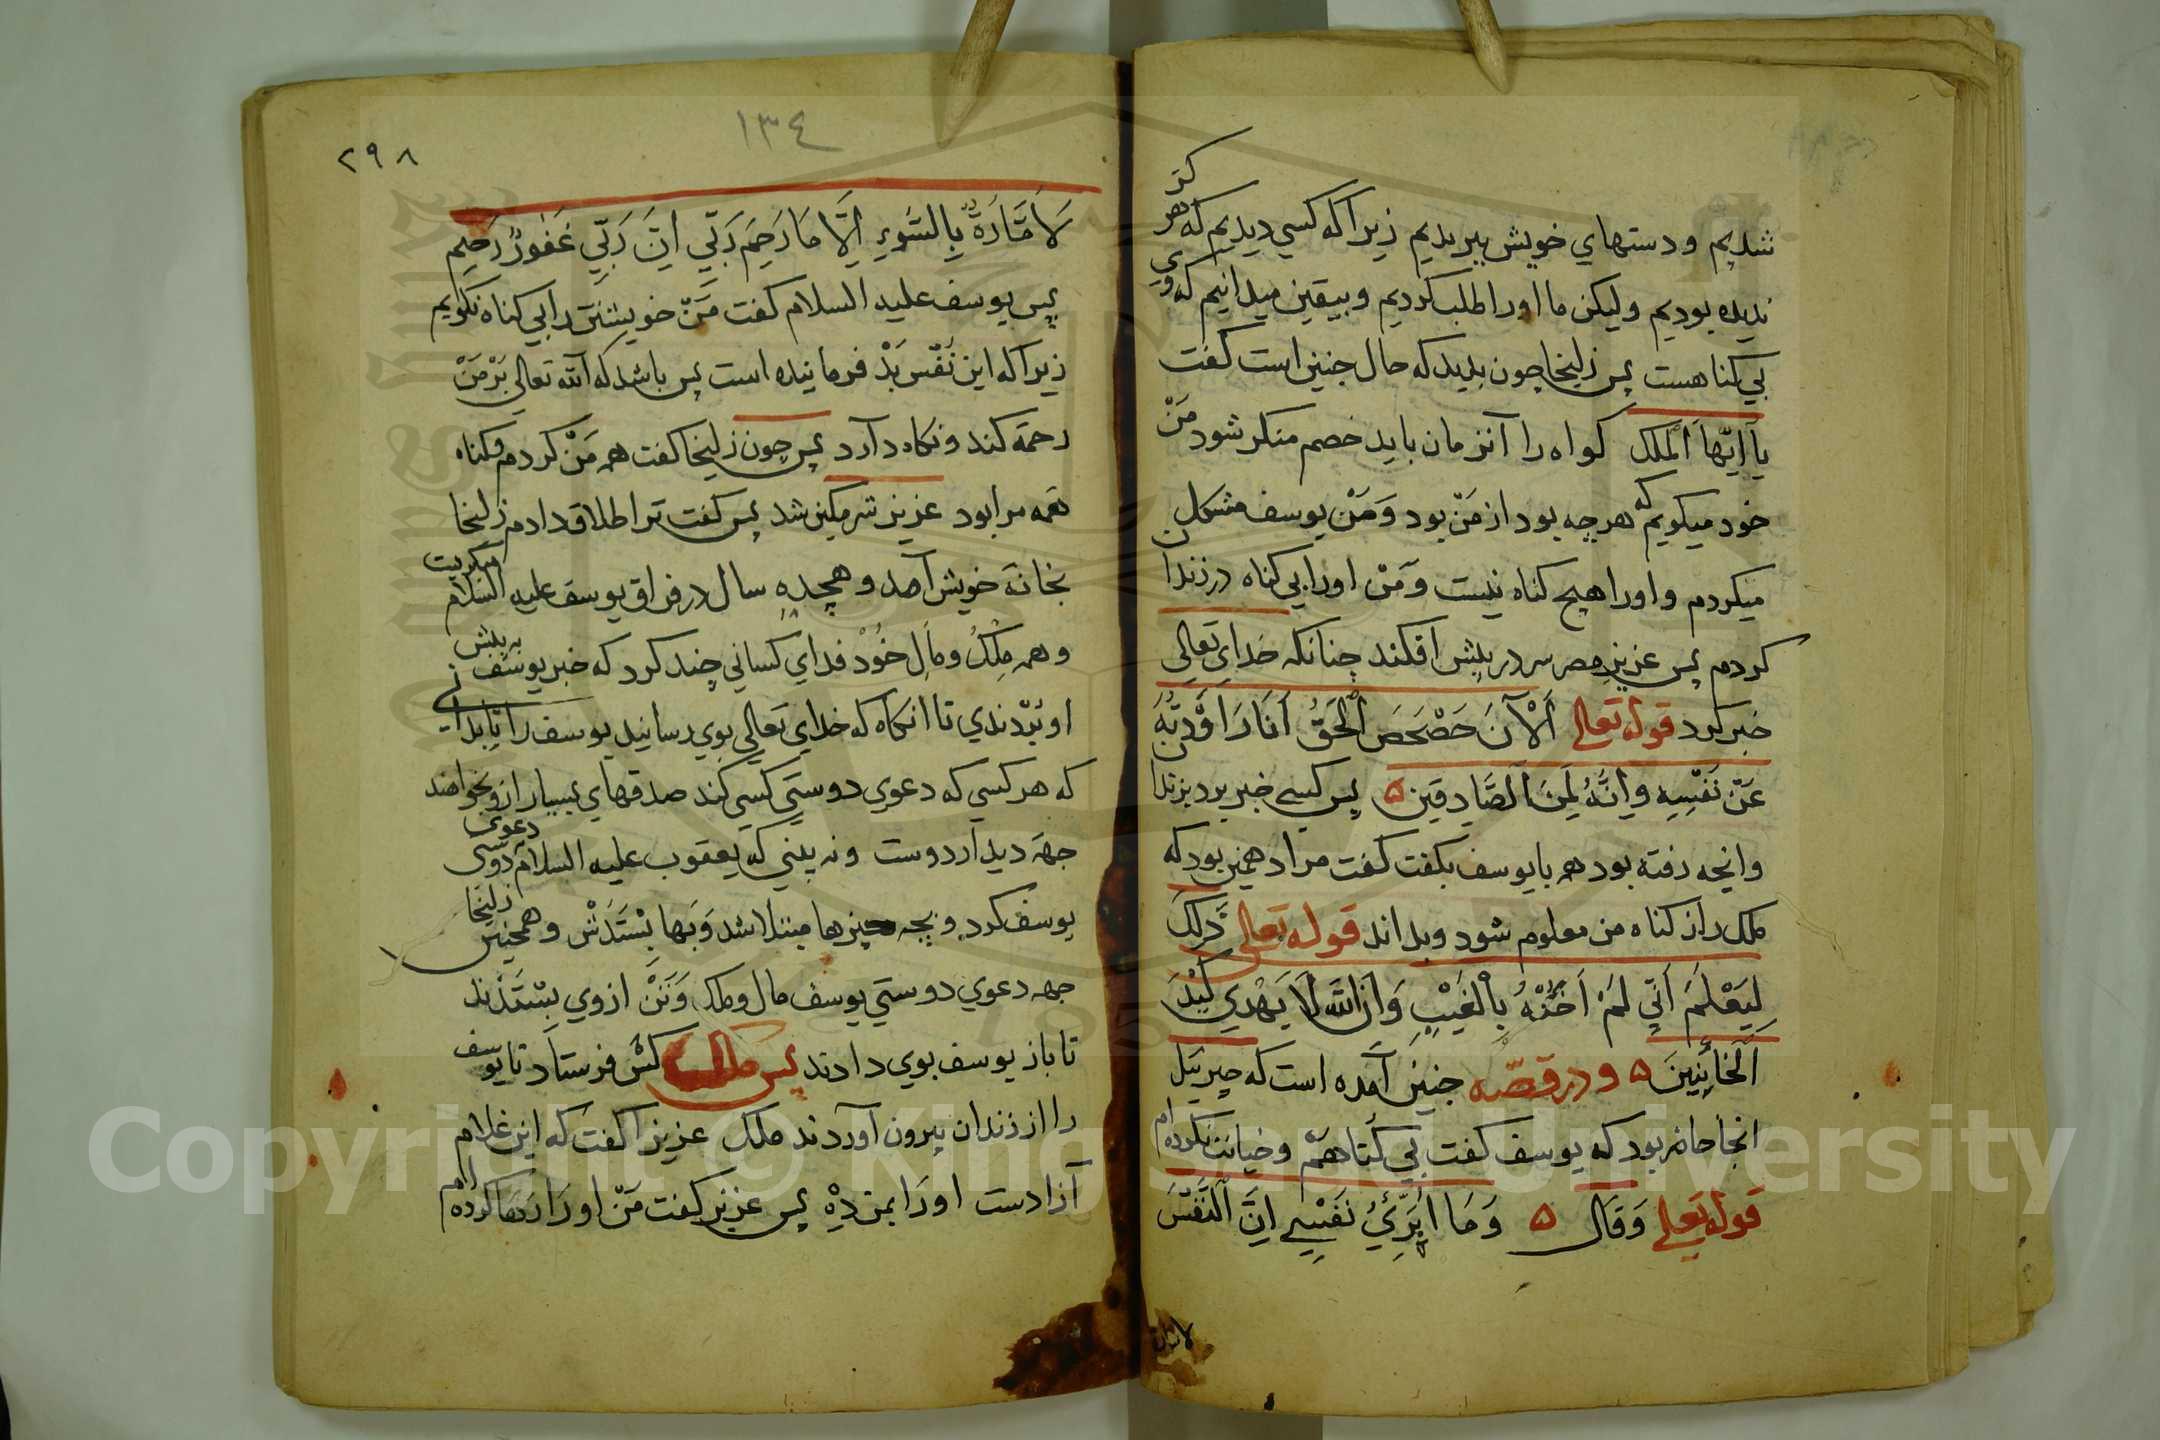 شديم ودستهاي خويش ببريديم زيراكه كسي ديديم كه هركز
نديده بوديم وليكن ما اورا طلب كرديم وبيقين ميدانيم كه وي
بي كناهست پس زليخا چون بديد كه حال جنين است كفت
يآ ايّها الملك كواه را آنزمان بايد خصم منكر شود مَنْ
خود ميكويم كه هرچه بود از مَنْ بود وَمَنْ يوسف مشكل
ميكردم واورا هيچ كناه نيست وَمَنْ اورا بي كناه درزندان
كردم پس عزيز مصر سر در پيش افكند چنانكه خداي تعالي
خبر كرد قوله تعالى اَلْآنَ حَصْحَصَ الْحَقُّ اَنَا رَاوَدْتُهُ
عَنْ نَفْسِهِ وَاِنَّهُ لَمِنَ الصَّادِقِينَ ۵ پس كسي خبر برد بزندان
وانچه رفته بود همه بايوسف بكفت كفت مراد همين بود كه
ملك راز كناه من معلوم شود وبداند قوله تعالى ذَلِكَ
لِيَعْلَمَ اَنِّي لَمْ اَخُنْهُ بِالْغَيْبِ وَاَنَّ اللّٰهَ لَا يَهْدِي كَيْدَ
الْخَائِنِينَ ۵ ودر قصّه جنين آمده است كه جبرئيل
انجا حاضر بود كه يوسف كفت بي كناهم وخيانت نكرده ام
قوله تعالى وَقَال ۵ وَمَا اُبَرِّئُ نَفْسِي اِنَّ النَّفْسَ
لامارة
١٣٤
٢٩٨
لَاَمَّارَةٌ بِالسُّوءِ اِلَّا مَا رَحِمَ رَبِّي اِنَّ رَبِّي غَفُورٌ رَحِيم
پس يوسف عليه السلام كفت مَنْ خويشتن را بي كناه نكويم
زيراكه اين نَفْس بَدْ فرمانيده است پس باشد كه الله تعالي بَرْ مَنْ
رحمه كند ونكاه دآرد پس چون زليخا كفت همه مَنْ كردم وكناه
همه مرا بود عزيز شرمكين شد پس كفت ترا طلاق دادم زليخا
بخانهٔ خويش آمد وهجده سال در فراق يوسف عليه السلام ميكريست
وهمه مِلْك ومال خُوْد فداي كساني چند كرد كه خبر يوسف به پيش
او بُرْدندي تا انكاه كه خداي تعالي بوي رسانيد يوسف را تا بداني
كه هر كسي كه دعوي دوستي كسي كند صدقهاي بسيار ازو بخواهند
جهة ديدار دوست ونه بيني كه يعقوب عليه السلام دعوى دوستى
يوسف كرد وبچه چيزها مبتلا شد وَبَها بِسْتَدَنْدَشْ وهمچنين زليخا
جهه دعوي دوستي يوسف مال وملك وَتَنْ ازوي بِسْتَدَنْد
تا باز يوسف بوي دادند پس ملك كس فرستاد تا يوسف
را از زندان بيرون آوردند ملك عزيز را كفت كه اين غلام
آزادست اورا بمن دِهْ پس عزيز كفت مَنْ اورا رها كرده ام